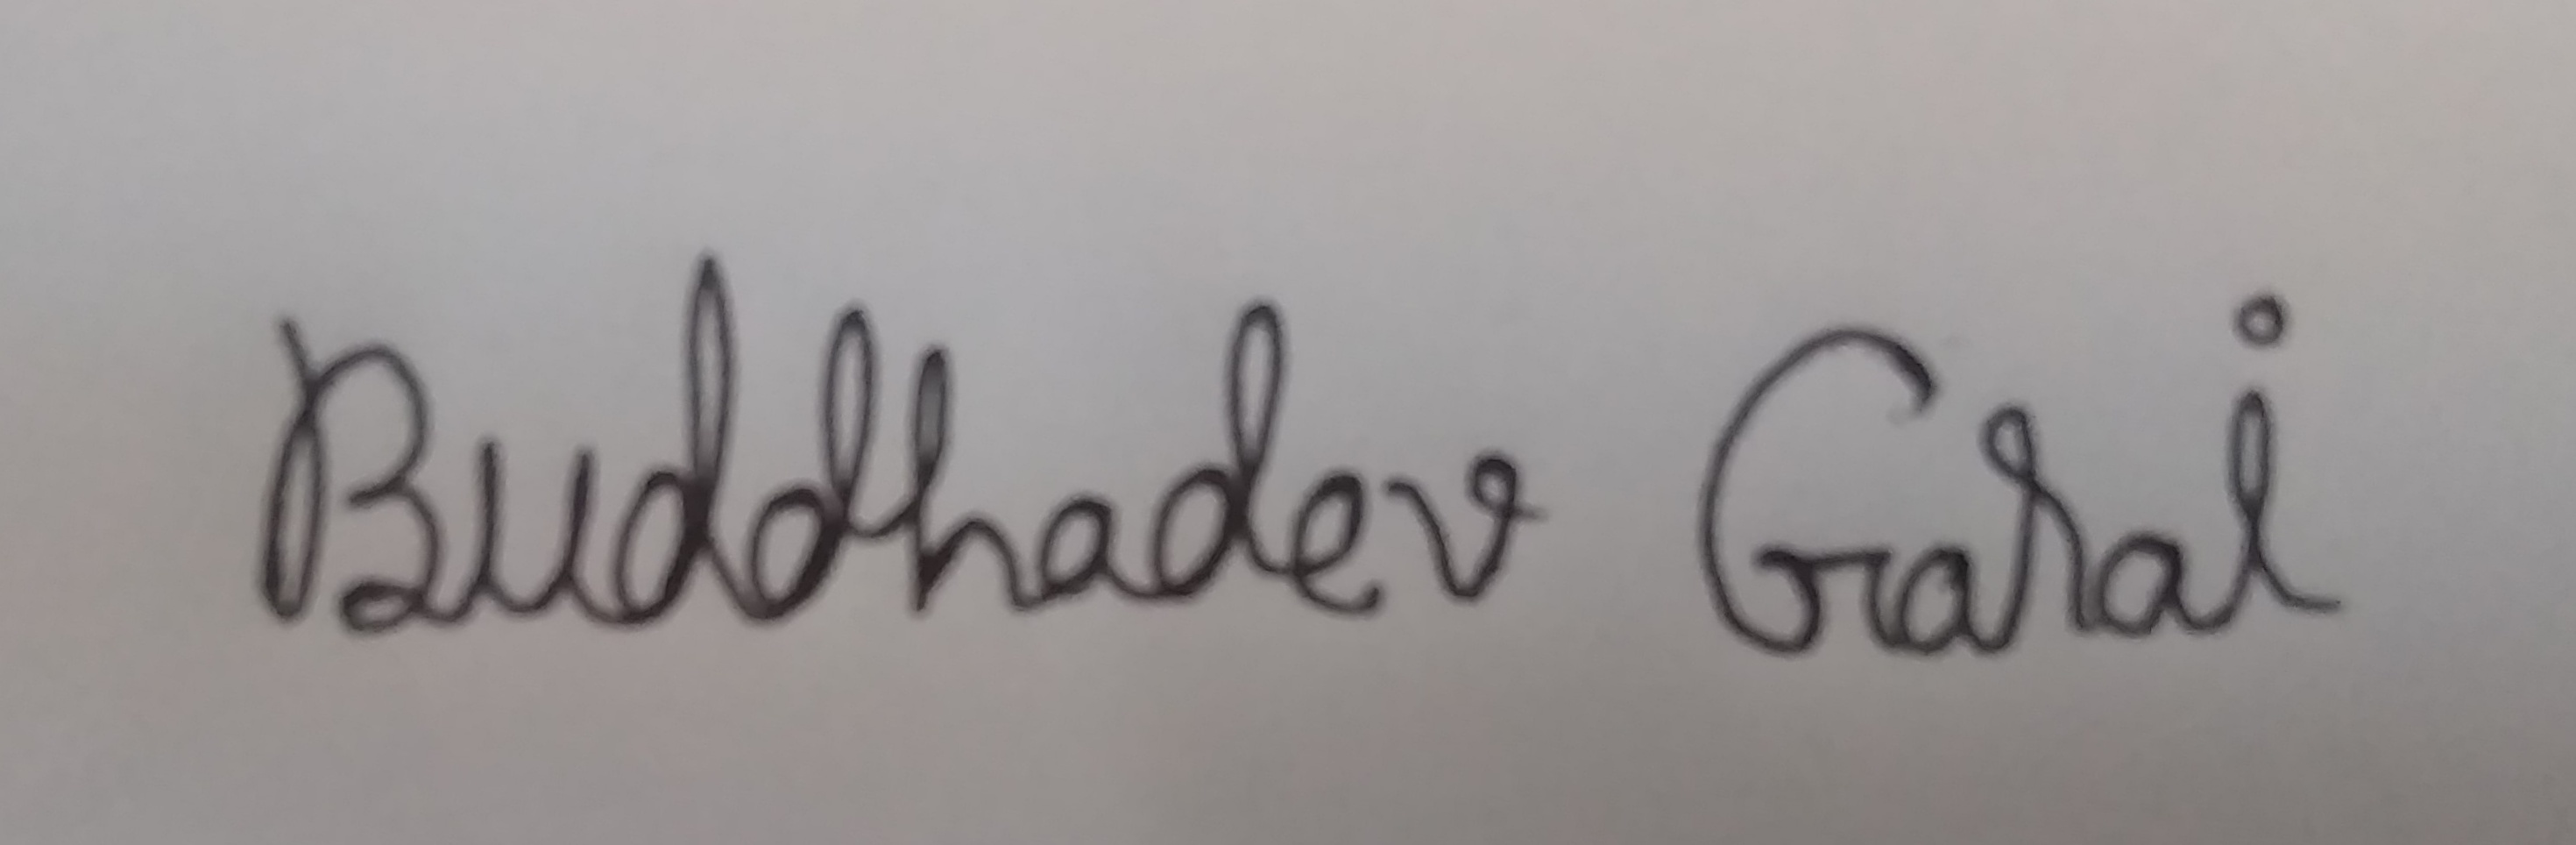 Buddhadev Garai